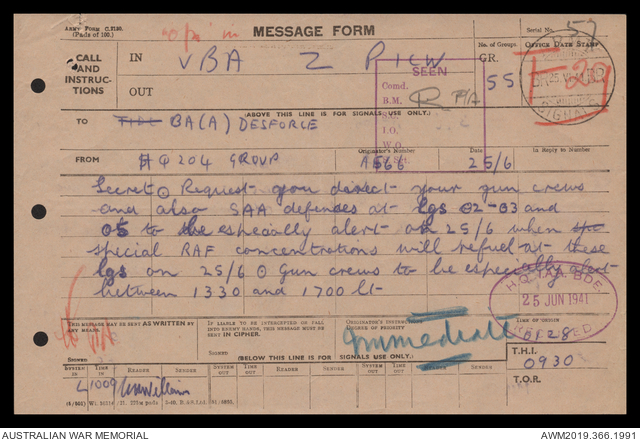 ARMY FORM C.2136.
(Pads of 100.)
"op" in
MESSAGE FORM
Serial No. 57
CALL
AND
INSTRUC-
TIONS
IN VBA Z PICW
OUT
No. of Groups.
GR. 55
OFFICE DATE STAMP
25 VI 41
SIGNALS
I-29
SEEN
Comd.
B.M.
S.C.
I.O.
W.O.
R P/A
(ABOVE THIS LINE IS FOR SIGNALS USE ONLY.)
TO BA(A) DESFORCE
FROM HQ 204 GROUP
Originator's Number A566
Date 25/6
In Reply to Number
Secret ⊙ Request you direct your gun crews
and also SAA defences at lgs 02-03 and
05 to be especially alert on 25/6 when
special RAF concentrations will refuel at these
lgs on 25/6 ⊙ Gun crews to be especially alert
between 1330 and 1700 lt
H.Q. I A.A. BDE.
25 JUN 1941
RECEIVED
THIS MESSAGE MAY BE SENT AS WRITTEN BY
ANY MEANS.
SIGNED
IF LIABLE TO BE INTERCEPTED OR FALL
INTO ENEMY HANDS, THIS MESSAGE MUST BE
SENT IN CIPHER.
SIGNED
ORIGINATOR'S INSTRUCTIONS
DEGREE OF PRIORITY
Immediate
TIME OF ORIGIN
0128
(BELOW THIS LINE IS FOR SIGNALS USE ONLY.)
T.H.I.
0930
T.O.R.
SYSTEM IN
TIME IN
READER
SENDER
SYSTEM OUT
TIME OUT
READER
SENDER
SYSTEM OUT
TIME OUT
READER
SENDER
L 1009
AUSTRALIAN WAR MEMORIAL
AWM2019.366.1991